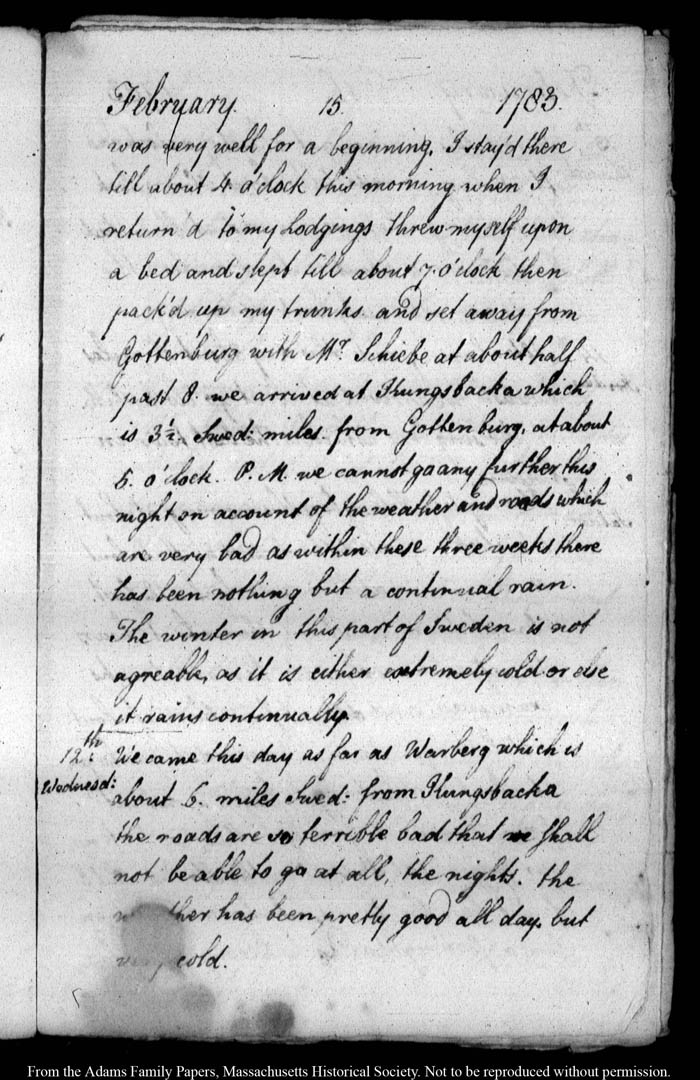 February. 15. 1783.
was very well for a beginning. I stay'd there
till about 4 o'clock this morning when I
return'd to my Lodgings threw myself upon
a bed and slept till about 7. o'clock then
pack'd up my trunks and set away from
Gottenburg with Mr. Schiebe at about half
past 8. we arrived at Kungsbacka which
is 3½. Swed: miles. from Gottenburg, at about
5. o'clock. P. M. we cannot go any further this
night on account of the weather and roads which
are very bad as within these three weeks there
has been nothing but a continual rain.
The winter in this part of Sweden is not
agreable, as it is either extremely cold or else
it rains continually.
12th: We came this day as far as Warberg which is
Wednesd: about 6. miles Swed: from Kungsbacka
the roads are so terrible bad that we shall
not be able to go at all, the nights. the
weather has been pretty good all day. but
very cold.
From the Adams Family Papers, Massachusetts Historical Society. Not to be reproduced without permission.